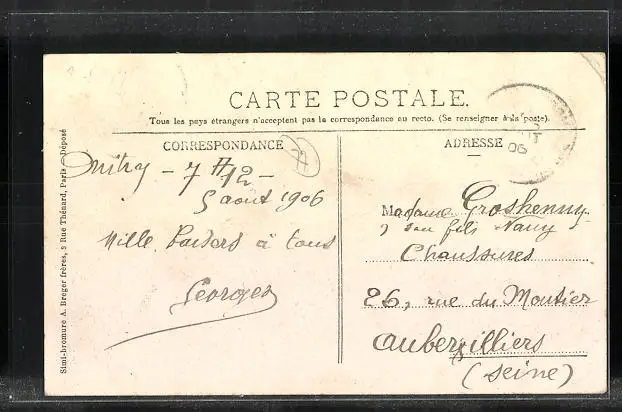 CARTE POSTALE.
Tous les pays étrangers n'acceptent pas la correspondance au recto. (Se renseigner à la poste).
CORRESPONDANCE
77
Mitry - 7 H 12 -
5 août 1906
Mille baisers à tous
Georges
ADRESSE
Madame Groshenny
son fils Nany
Chaussures
26, rue du Moutier
Aubervilliers
(Seine)
06
Simi-bromure A. Breger frères, 9 Rue Thénard, Paris - Déposé